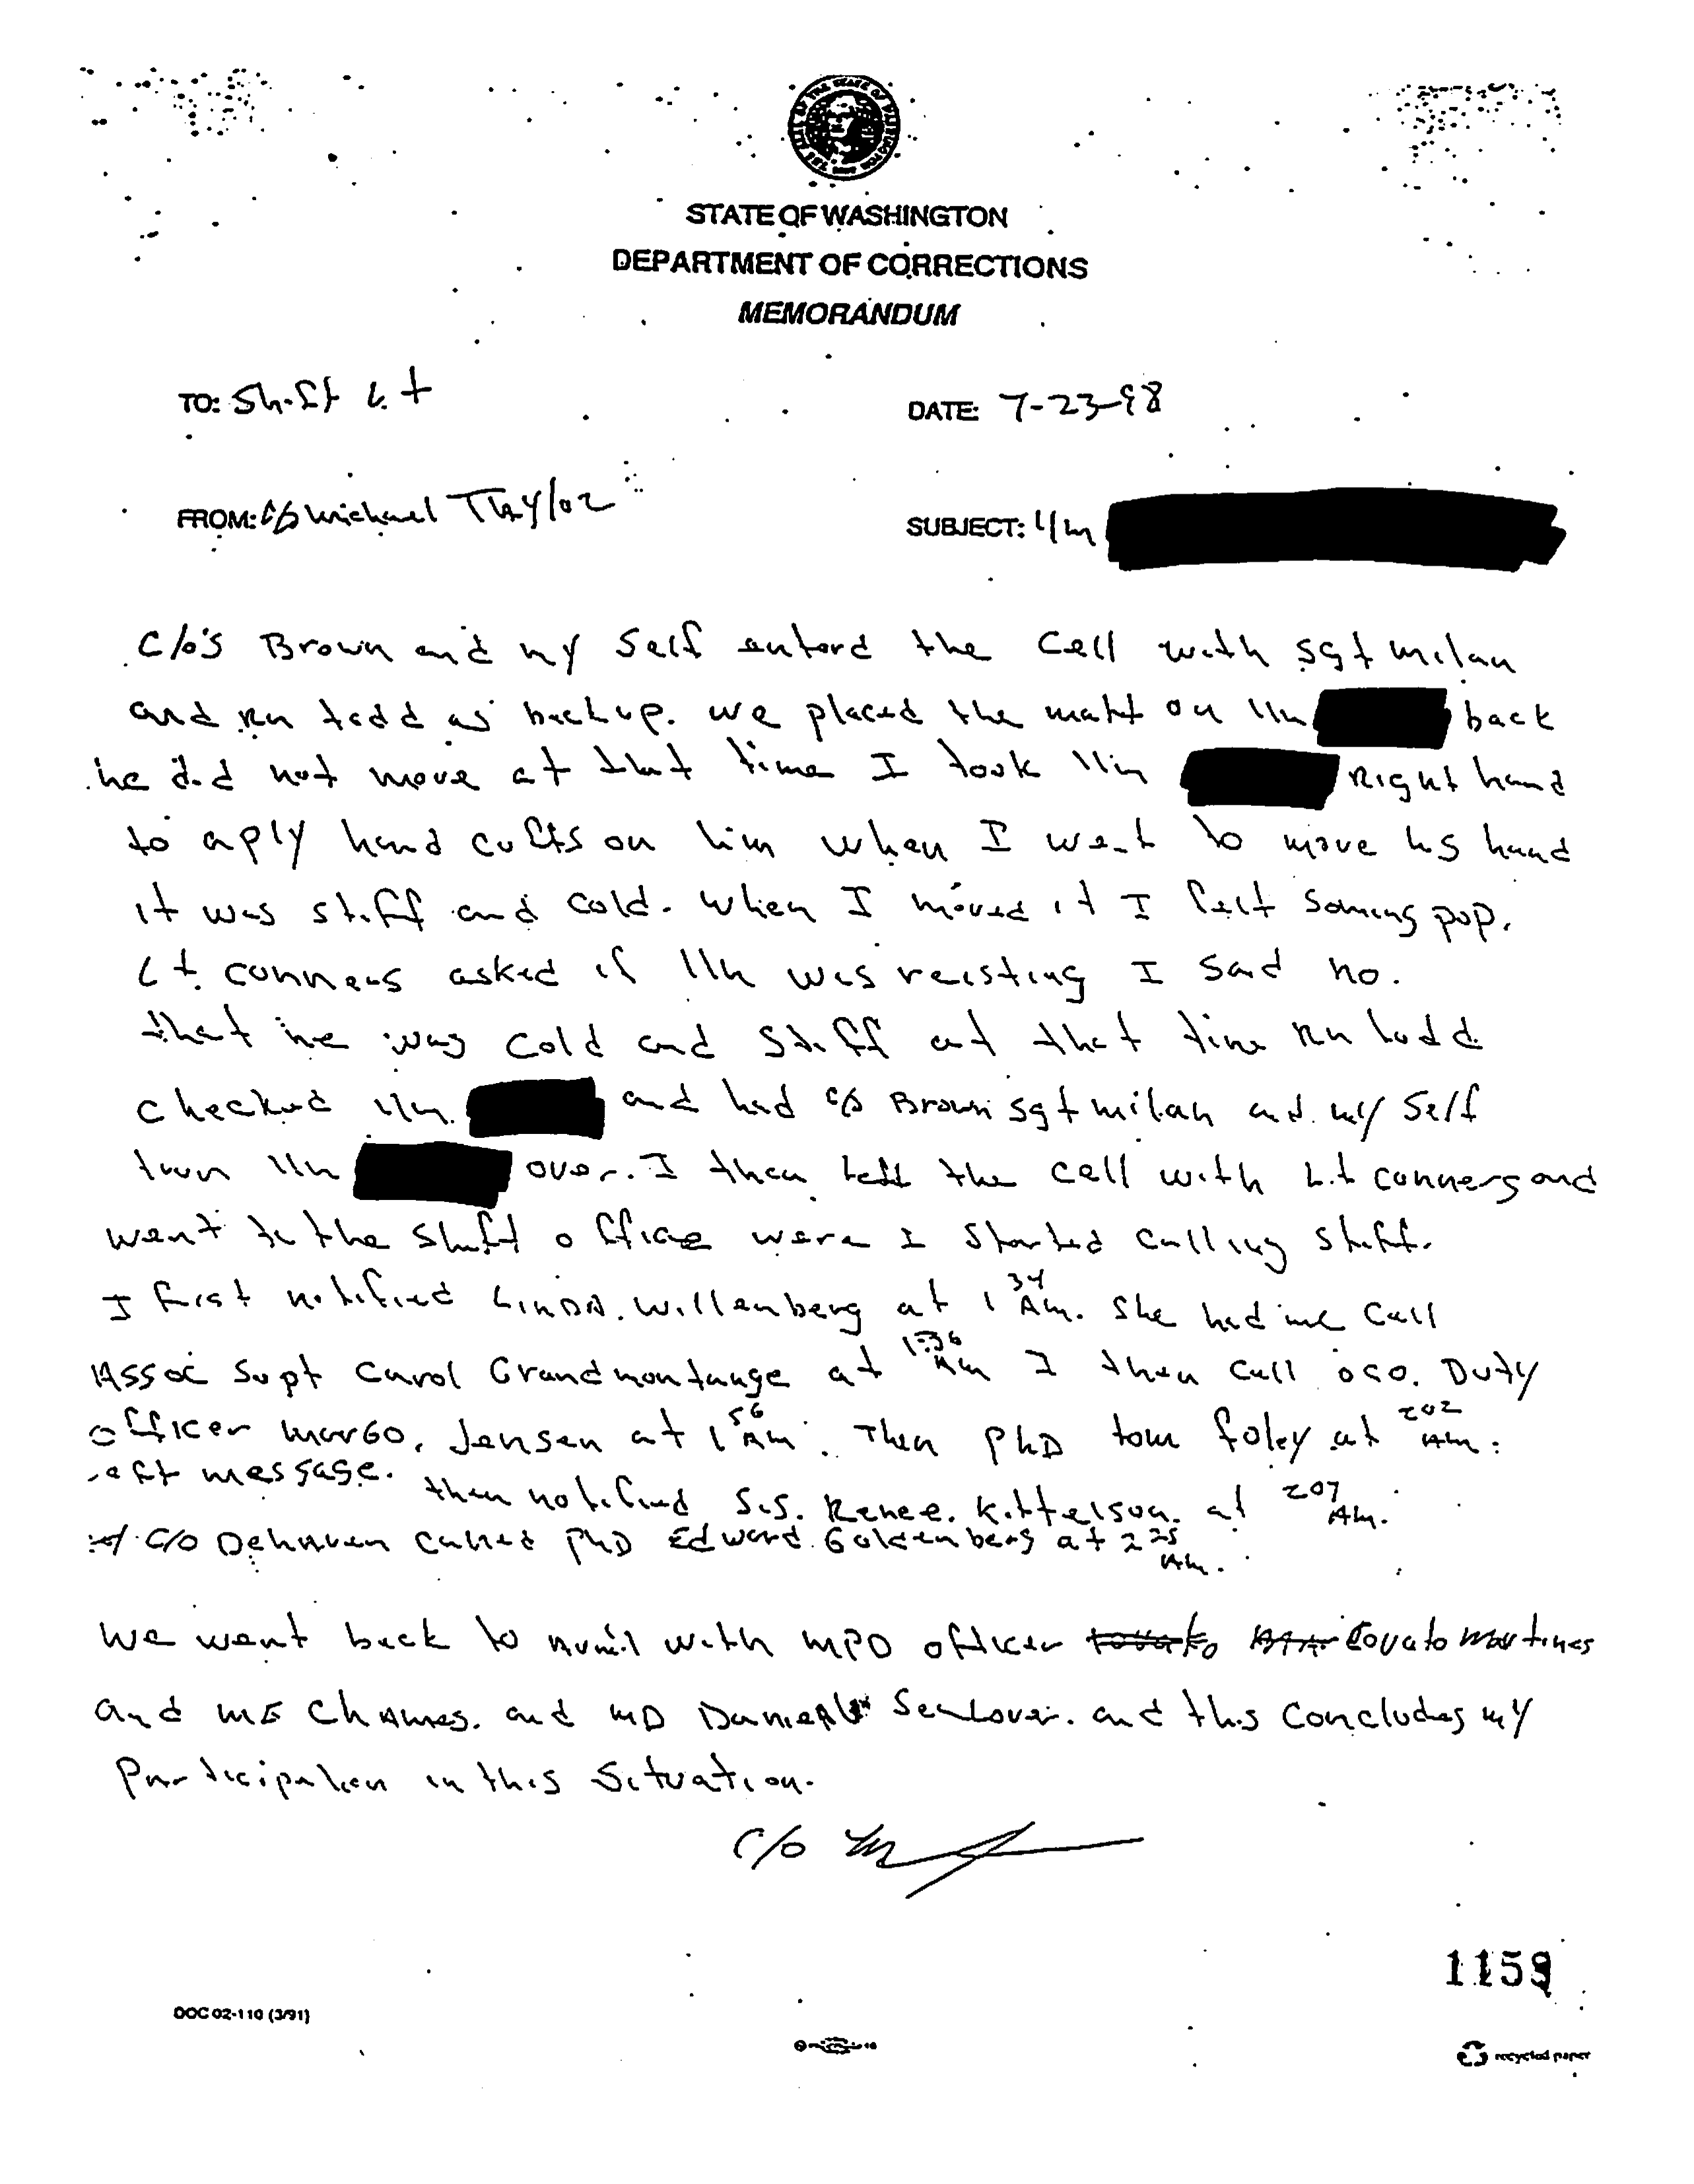 STATE OF WASHINGTON
DEPARTMENT OF CORRECTIONS
MEMORANDUM
TO: Shift Lt
DATE: 7-23-98
FROM: C/O Michael Taylor
SUBJECT: I/m
C/o's Brown and my Self enterd the Cell with sgt milan
and RN todd as backup. we placed the matt on I/m back
he did not move at that time I took I/m Right hand
to aply hand cuffs on him when I went to move his hand
it was stiff and cold. when I moved it I felt soming pop.
Lt. conners asked if I/m was reisting I said no.
that he was cold and stiff at that time RN todd
checked I/m and had c/o Brown sgt milan and my Self
turn I/m over. I then left the cell with Lt conners and
went to the shift office were I started calling staff.
I first notified LINDA. Willenberg at 1 34 Am. She had me call
Assoc Supt Carol Grandmontange at 1:36 Am I then call oso. Duty
officer margo. Jensen at 1 56 Am. Then PhD tom foley at 202 Am.
left message. then notified S.S. Renee. Kittelson. at 207 Am.
C/O DeHaven called PhD Edward. Goldenberg at 2 25 Am.
We went back to with MPD officer Lovato Martines
and ME Chames. and MD Sealover. and this concludes my
Participation in this Situation.
C/o
1159
DOC 02-110 (3/91)
recycled paper